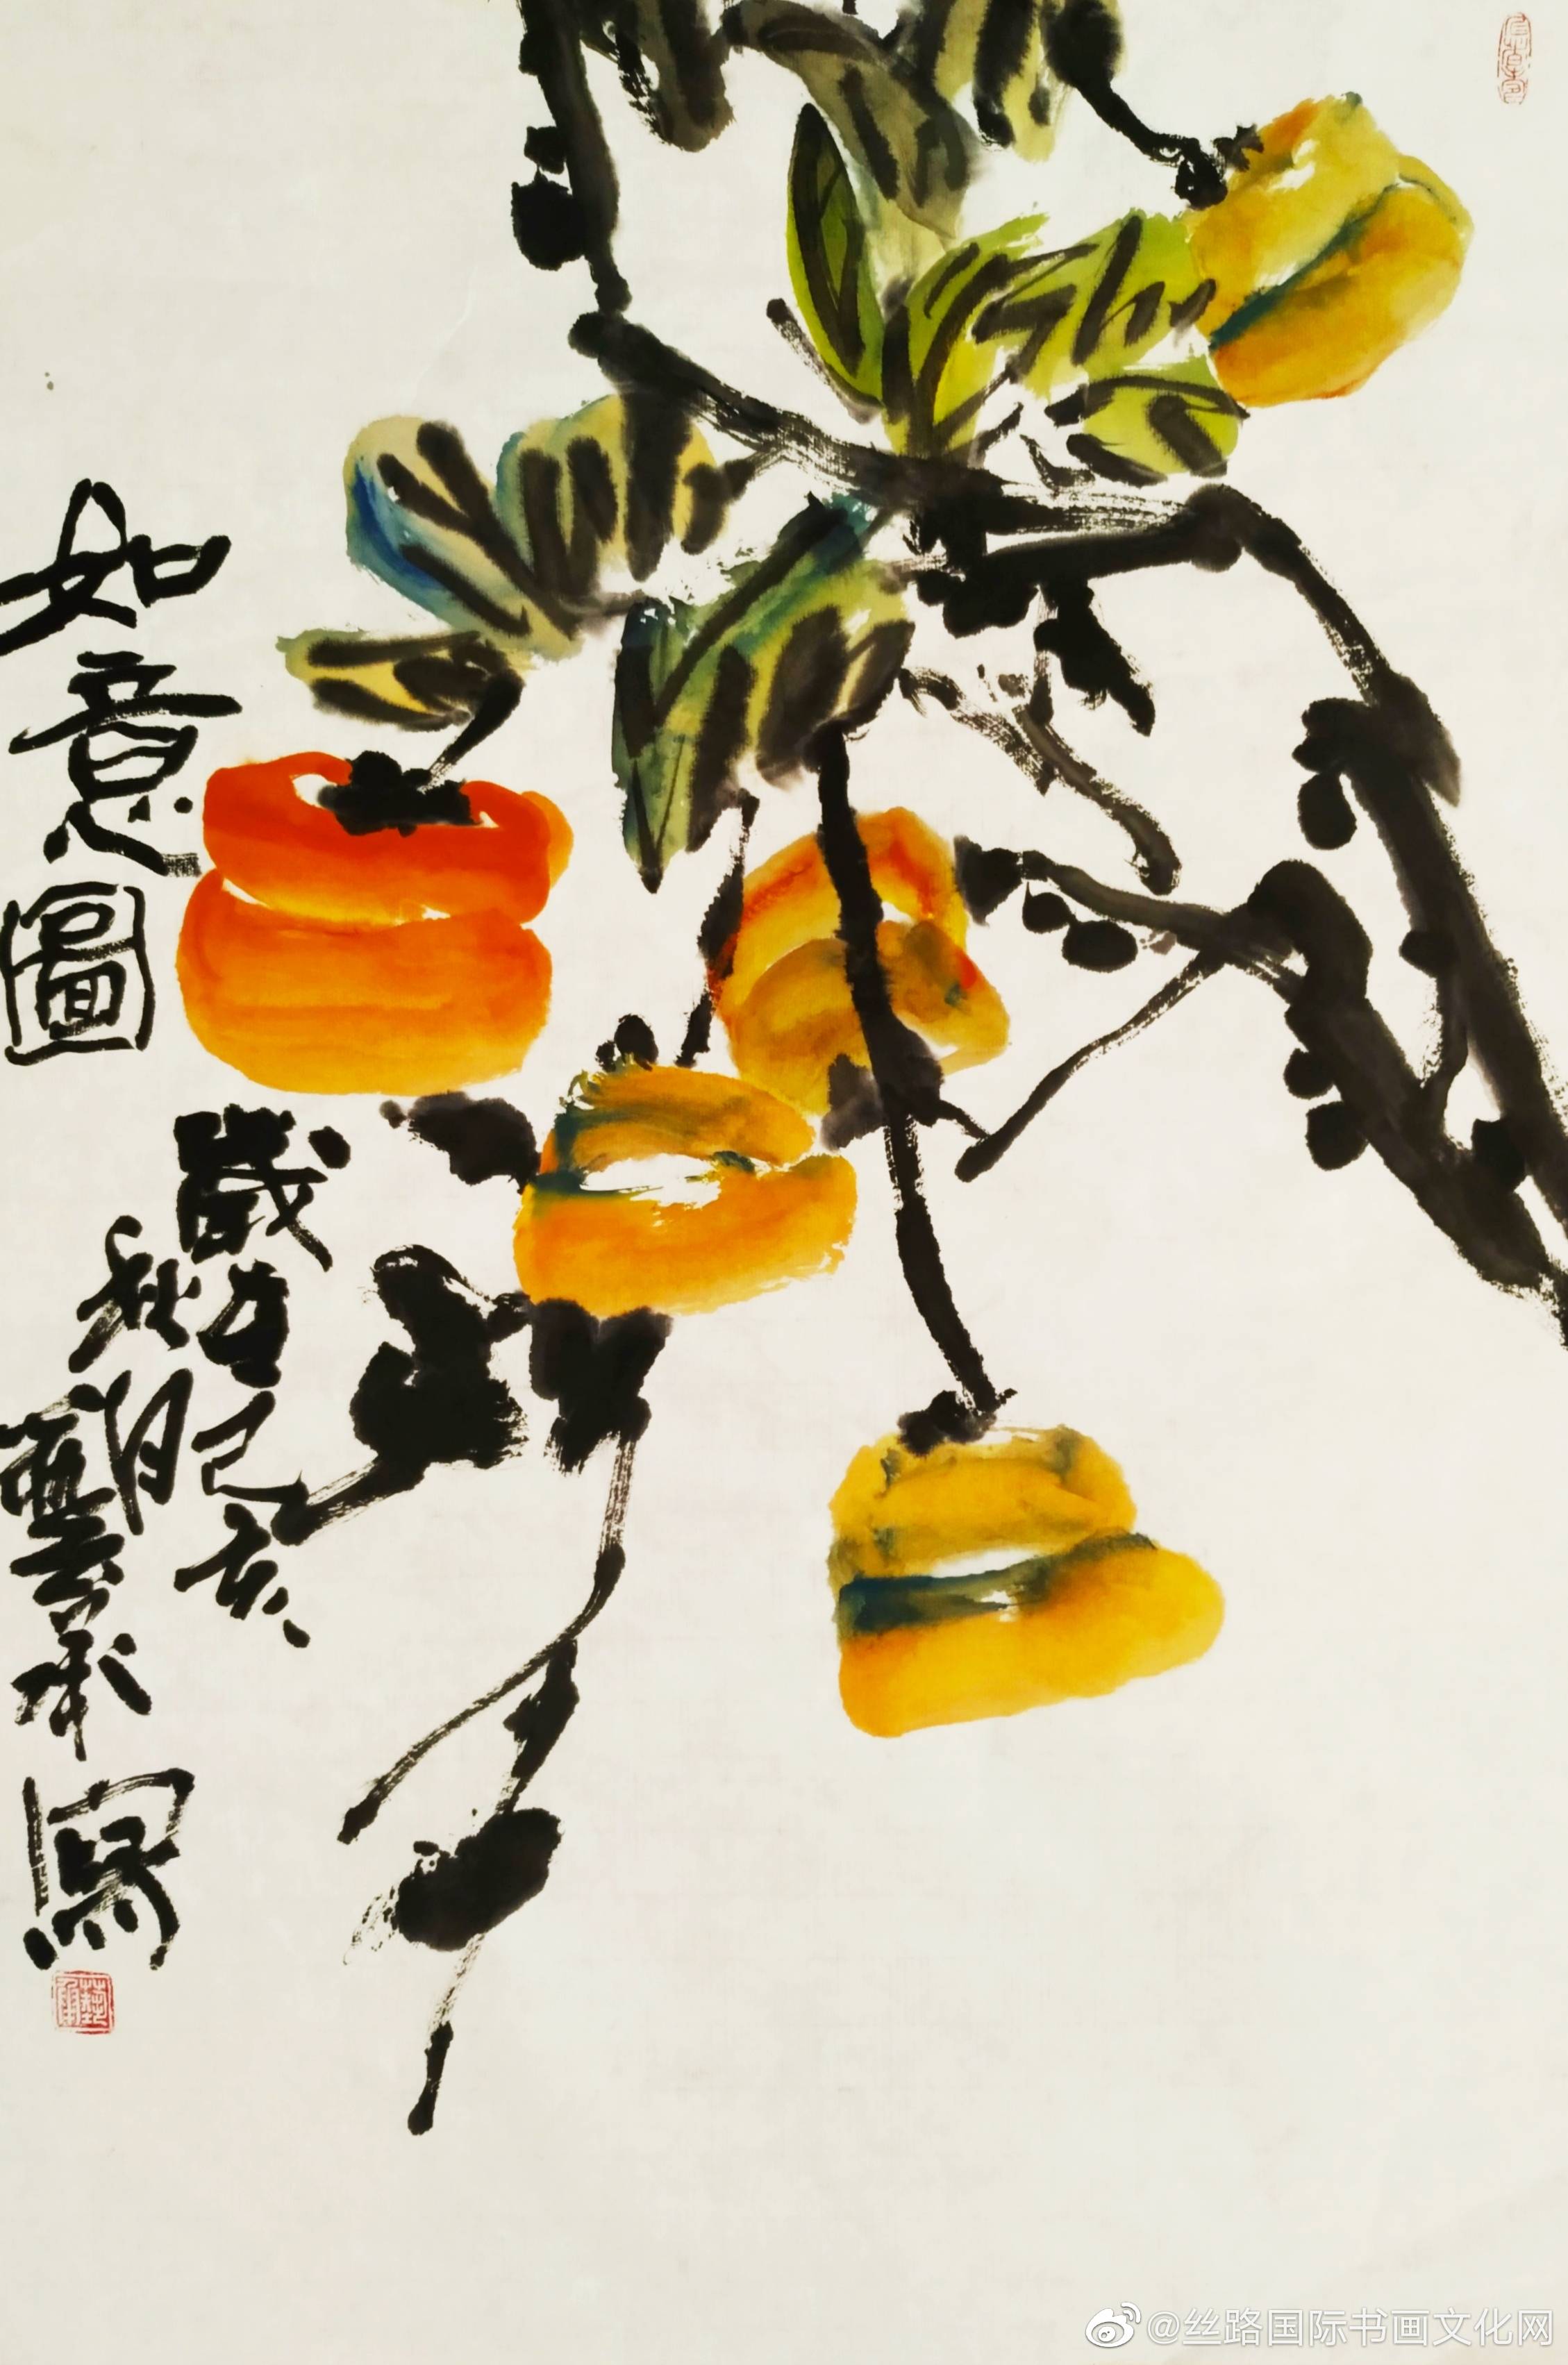 如意圖
歲在己亥
秋月
寫
@丝路国际书画文化网